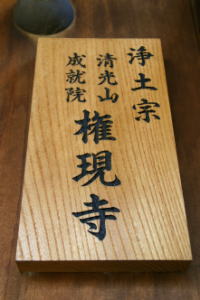 浄土宗
清光山
成就院
権現寺